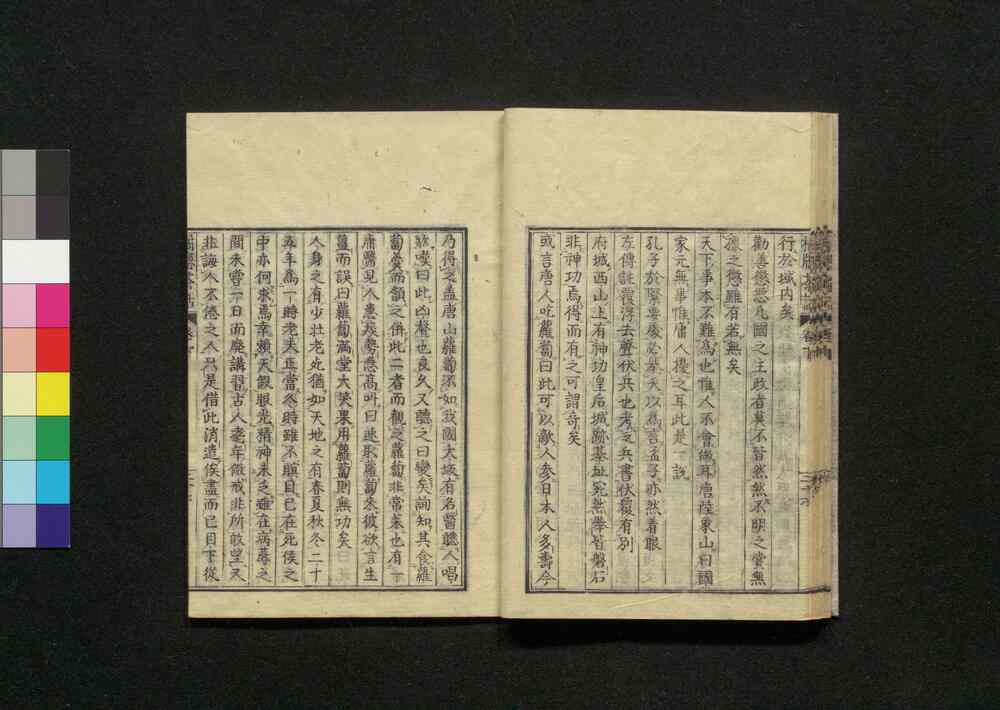 行於域内矣
勸善懲惡凡國之主政者莫不皆然然不明之賞無
據之懲雖有若無矣
天下事本不難爲也惟人不會做耳唐陸象山曰國
家元無事惟庸人擾之耳此是一說
孔子於緊要處必舉天以爲言孟子亦然着眼
左傳註覆得去聲伏兵也考之兵書伏覆有別
府城西山上有神功皇后城蹟基址宛然舉皆磐石
非神功焉得而有之可謂奇矣
或言唐人吃蘿蔔曰此可以敵人參日本人多壽今
乃得之蓋唐山蘿蔔不如我國大坂有名醫聽人唱
歌嘆曰此凶聲也良久又聽之曰變矣詢知其食蘿
蔔羹而韻之併此二者而觀之蘿蔔非常菜也有一
庸醫見人患 勢悉高叫曰速取蘿蔔來彼欲言生
薑而誤曰蘿蔔滿堂大笑果用蘿蔔則無功矣
人身之有少壯老死猶如天地之有春夏秋冬二十
五年爲一時老夫正當冬時雖不瞑目已在死侯之
中亦何求焉幸賴天假眼光精神未乏雖在病蓐之
間未嘗一日而廢講習古人耄年儆戒非所敢望又
非誨人不倦之人只是借此消遣俟盡而已目下從